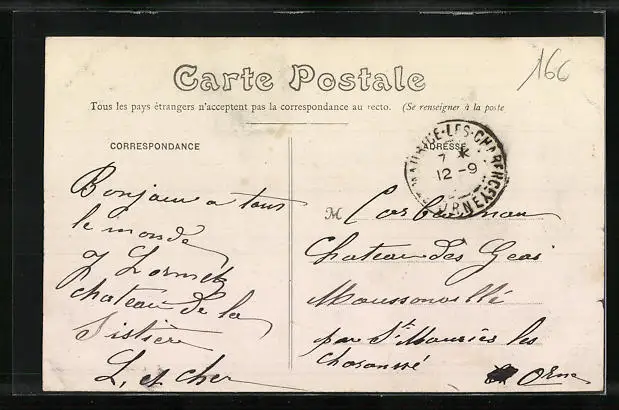 166
Carte Postale
Tous les pays étrangers n'acceptent pas la correspondance au recto. (Se renseigner à la poste
CORRESPONDANCE
ADRESSE
MAURICE-LES-CHARENCEY
7 *
12 - 9
ORNE
Bonjour a tous
le monde
J Lormet
chateau de la
Sistière
L. et cher
M
Chateau des Geai
Moussonvillé
par St Mauriès les
Orne